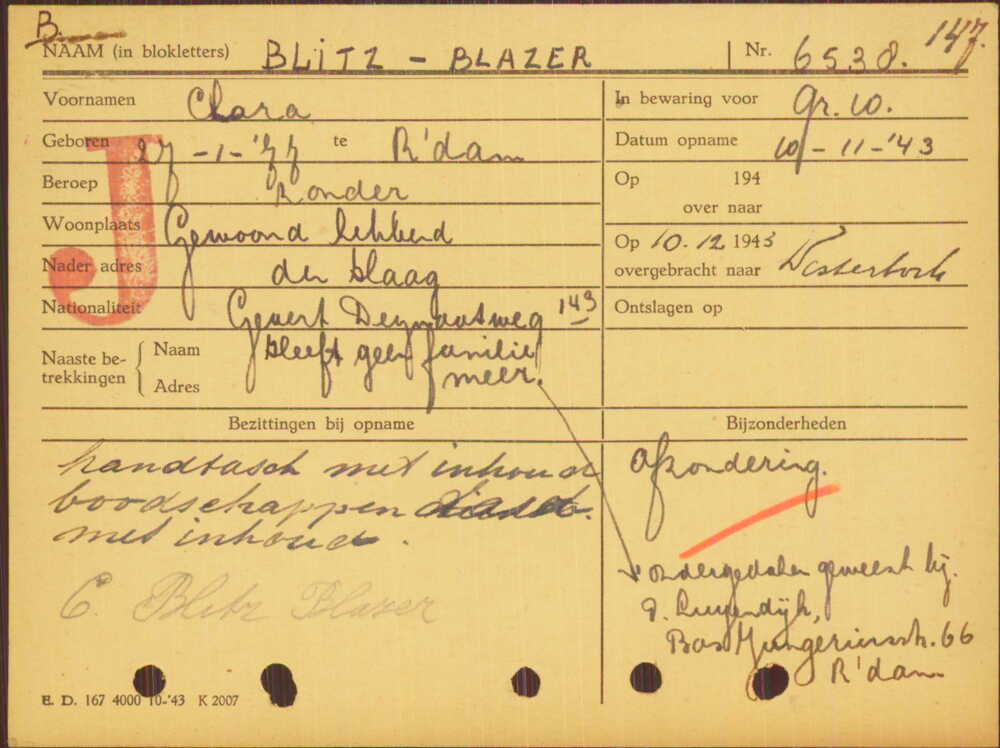 B.
NAAM (in blokletters) BLITZ - BLAZER Nr. 6538. 147.
Voornamen Clara In bewaring voor Gr. 10.
Geboren 27 -1-'77 te R'dam Datum opname 10-11-'43
Beroep Zonder Op 194
over naar
Woonplaats Gewoond hebbend
Op 10.12 1943
Nader adres den Haag overgebracht naar Westerbork
Nationaliteit Gevert Deynootweg 143 Ontslagen op
Naaste be-
trekkingen
Naam Heeft geen familie
Adres meer.
Bezittingen bij opname Bijzonderheden
handtasch met inhoud
boodschappen
met inhoud.
Afzondering.
C. Blitz Blazer
ondergedoken geweest bij.
Luyendijk,
Bas Jungeriusstr. 66
R'dam
J
E. D. 167 4000 10-'43 K 2007